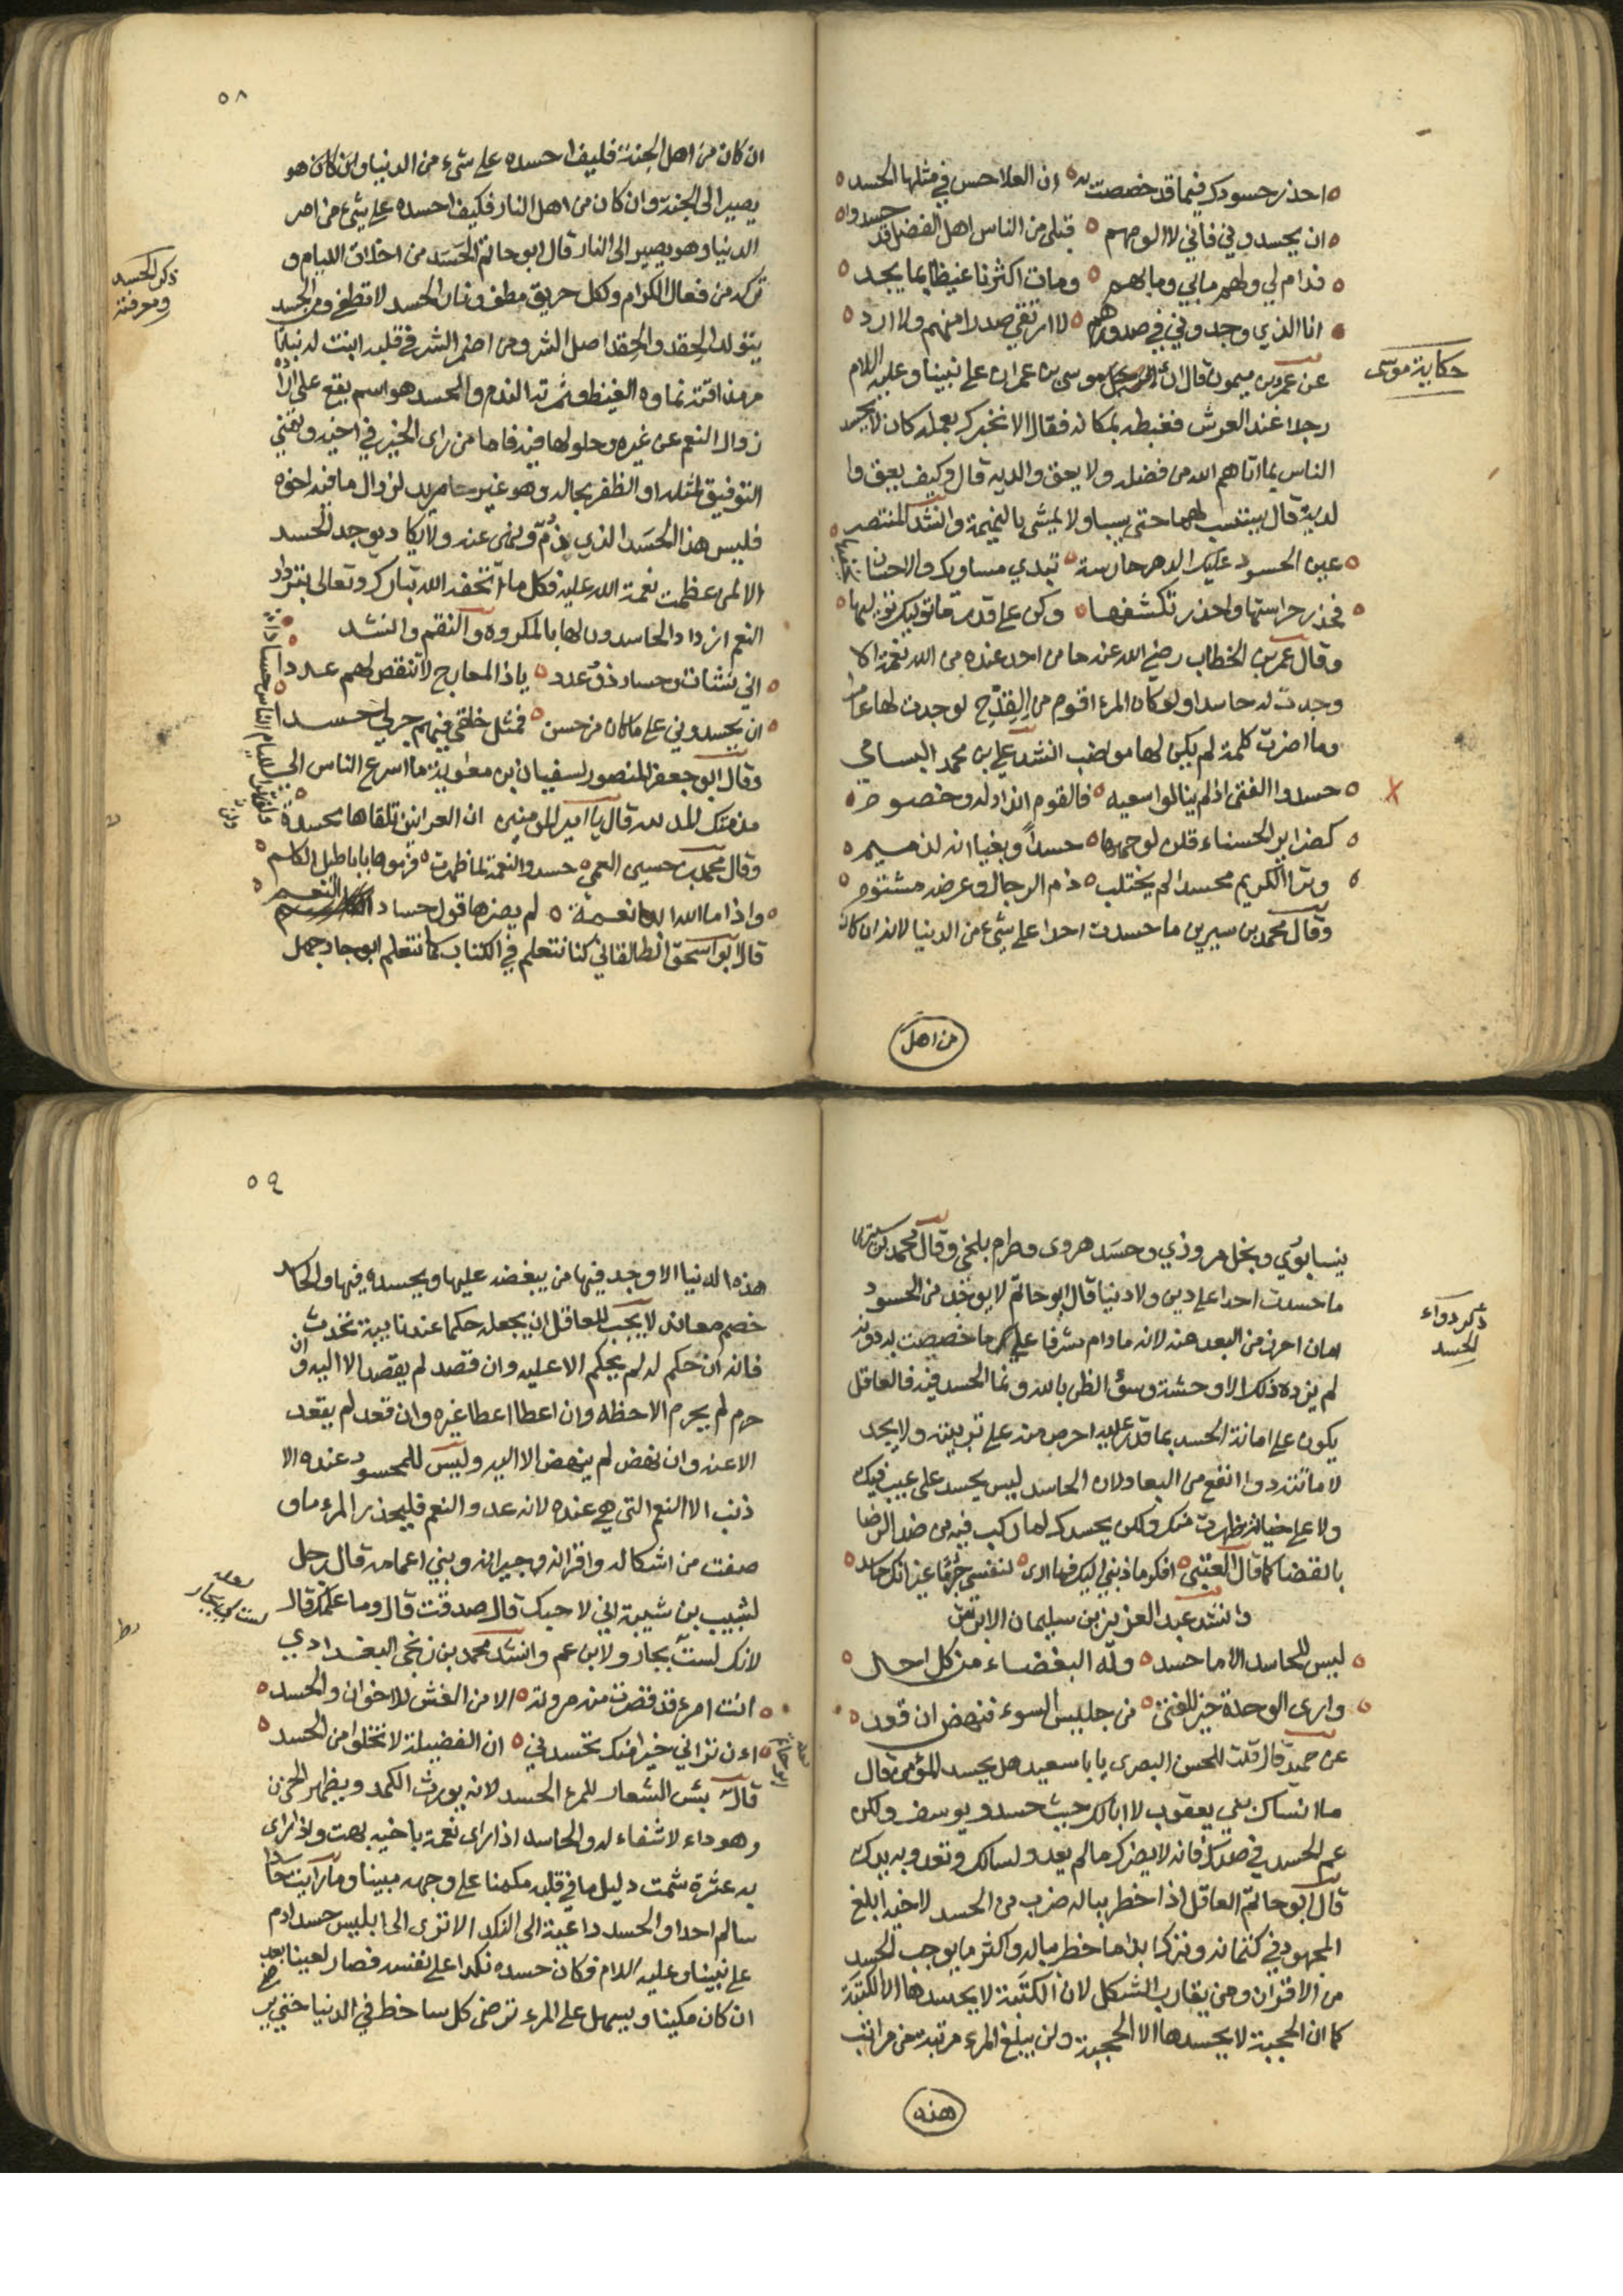 احذر حسودك فيما قد خصصت به ان العلا حسن في مثلها الحسد
ان يحسدوني فاني لا الومهم قبلي من الناس اهل الفضل قد حسدوا
فدام لي ولهم مابي وما بهم ومات اكثرنا غيظا بما يجد
انا الذي وجدوني في صدورهم لا ارتقي صدرا منهم ولا ارد
حكاية موسى
عن عمرو بن ميمون قال راى موسى بن عمران على نبينا وعليه السلام
رجلا عند العرش فغبطه بمكانه فقال الا نخبرك بعمله كان لا يحسد
الناس بما اتاهم الله من فضله ولا يعق والديه قال وكيف يعق وا
لديه قال يستسب لهما حتى يسبا ولا يمشي بالنميمة وانشد المنتصر
عين الحسود عليك الدهر حارسة تبدي مساويك والاحسان
فحذر حراستها واحذر تكشفها وكن على قدر ما توليك توليها
وقال عمر بن الخطاب رضي الله عنه ما من احد عنده من الله نعمة الا
وجدت له حاسدا ولو كان المرء اقوم من القدح لوجدت لها غامزا
وما اضرت كلمة لم يكن لها مواضب انشد علي بن محمد البسامي
حسدوا الفتى اذ لم ينالوا سعيه فالقوم انداد له وخصوم
كضراير الحسناء قلن لوجهها حسداً وبغيا انه لذميم
وترا الكريم محسدا لم يجتلب ذم الرجال وعرضه مشتوم
وقال محمد بن سيرين ما حسدت احدا على شيء من الدنيا لانه ان كان
من اهل
٥٨
ان كان من اهل الجنة فكيف احسده على شيء من الدنيا وان كان هو
يصير الى الجنة وان كان من اهل النار فكيف احسده على شيء من امر
الدنيا وهو يصير الى النار قال ابو حاتم الحسد من اخلاق الليام و
ذكر الحسد
ومعرفته
تركه من فعال الكرام ولكل حريق مطفي ونار الحسد لا تطفي ومن الحسد
يتولد الحقد والحقد اصل الشر ومن اضمر الشر في قلبه انبت له نباتا
مرا مذاقته نماوه الغيظ وثمرته الندم والحسد هو اسم يقع على ارادة
زوال النعم عن غيره وحلولها فيه فاما من راى الخير في اخيه وتمنى
التوفيق لمثله او الظفر بحاله وهو غير مريد لزوال ما فيه اخوه
فليس هذا الحسد الذي ذم ونهي عنه ولا يكاد يوجد الحسد
الا لمن عظمت نعمة الله عليه فكل ما اتحفه الله تبارك وتعالى بترداد
النعم ازداد الحاسدون لها بالمكروه والنقم وانشد
اني نشات وحسادي ذوو عدد ياذا المعارج لا تنقص لهم عددا
ان يحسدوني على ما كان من حسن فمثل خلقي فيهم جر لي حسدا
وقال ابو جعفر المنصور لسفيان بن معاوية ما اسرع الناس الى
قال يا امير المومنين ان العرانين تلقاها محسدة
وقال محمد بن حسين العمي حسدوا النعمة لما ظهرت فرموها باباطيل الكلم
واذا ما الله ابدا نعمة لم يضرها قول حساد النعم
قال ابو اسحق الطالقاني كنا نتعلم في الكتاب كما نتعلم ابو جاد جهل
نيسابوري وبخل مروذي وحسد هروى وطرام بلخي وقال محمد بن سيرين
ما حسدت احدا على دين ولا دنيا قال ابو حاتم لا يوخذ من الحسود
ذكر دواء
الحسد
امان احرز من البعد منه لانه ما دام مشرفا على ما خصصت به دونه
لم يزده ذلك الا وحشة وسوء الظن بالله ونما الحسد فيه فالعاقل
يكون على اماتة الحسد بما قدر عليه احرص منه على تربيته ولا يجد
لاماتته دواء انفع من البعاد لان الحاسد ليس يحسد على عيب فيك
ولا على خيانة ظهرت منك ولكن يحسدك لما ركب فيه من ضد الرضا
بالقضا كما قال العتبي افكر ما ذنبي اليك فما ارى لنفسي جرما غير انك حاسد
وانشد عبد العزيز بن سليمان الابرش
ليس للحاسد الا ما حسد وله البغضاء من كل احد
وارى الوحدة خير للفتى من جليس السوء فنهض ان قعد
عن حميد قال قلت للحسن البصرى يابا سعيد هل يحسد المؤمن قال
ما انساك بني يعقوب لا ابا لك حيث حسدو يوسف ولكن
عم الحسد في صدرك فانه لا يضرك ما لم يعدو لسانك وتعدو به يدك
قال ابو حاتم العاقل اذا خطر بباله ضرب من الحسد لاخيه ابلغ
المجهود في كتمانه وترك ابدا ما خطر بباله واكثر ما يوجب الحسد
من الاقران ومن يقارب الشكل لان الكتبة لا يحسدها الا الكتبة
كما ان الحجبة لا يحسدها الا الحجبة ولن يبلغ المرء مرتبة من مراتب
هذه
٥٩
هذه الدنيا الا وجد فيها من يبغضه عليها ويحسده فيها والحاسد
خصم معاند لا يجب للعاقل ان يجعله حكما عند نايبة تحدث
فانه ان حكم له لم يحكم الا عليه وان قصد لم يقصد الا اليه وان
حرم لم يحرم الا حظه وان اعطا اعطا غيره وان قعد لم يقعد
الا عنه وان نهض لم ينهض الا اليه وليس للمحسود عنده الا
ذنب الا النعم التي هي عنده لانه عدو النعم فليحذر المرء ما و
صفت من اشكاله واقرانه وجيرانه وبني اعمامه قال رجل
لشبيب بن شيبة اني لاحبك قال صدقت قال وما علمك قال
لانك لست بجار ولا ابن عم وانشد محمد بن زنجى البغدادي
انت امرء قد قصرت منه مروته الا من الغش للاخوان والحسد
اءن تراني خيرا منك تحسدني ان الفضيلة لا تخلوا من الحسد
قال بئس الشعار للمرء الحسد لانه يورث الكمد ويظهر الحزن
وهو داء لا شفاء له والحاسد اذا راى نعمة باخيه بهت واذا راى
به عثرة شمت دليل ما في قلبه مكمنا على وجهه مبينا وما رايت حاسدا
سالم احدا والحسد داعية الى النكد الا ترى الى ابليس حسد ادم
على نبينا وعليه السلام فكان حسده نكدا على نفسه فصار لعينا بعد
ان كان مكينا ويسهل على المرء ترضى كل ساخط في الدنيا حتى ير